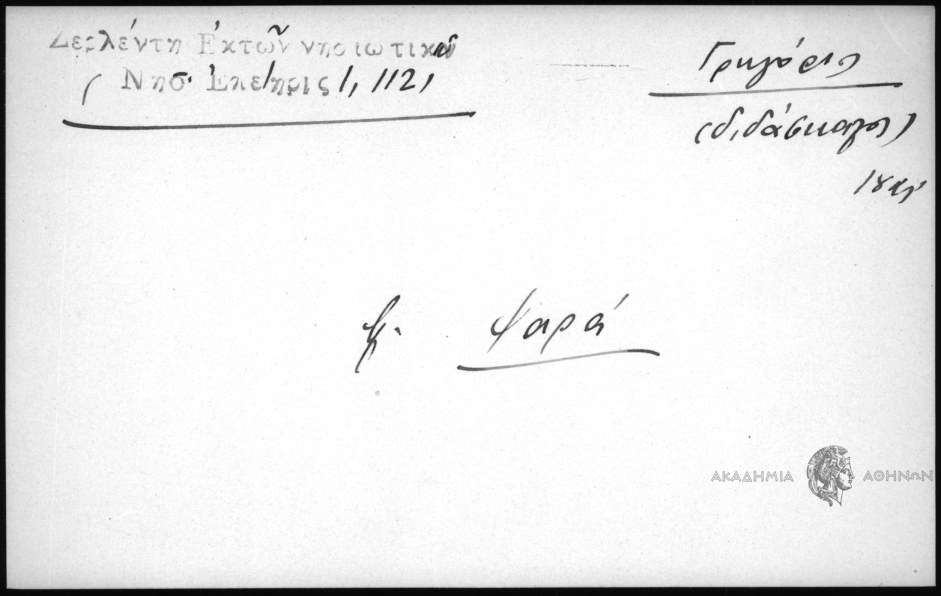 Δερλέντη Ἐκ τῶν νησιωτικῶν
( Νησ. Ἐπετηρις 1, 112,
Γρηγόριος
(διδάσκαλος)
18
Ψαρά
ΑΚΑΔΗΜΙΑ ΑΘΗΝΩΝ